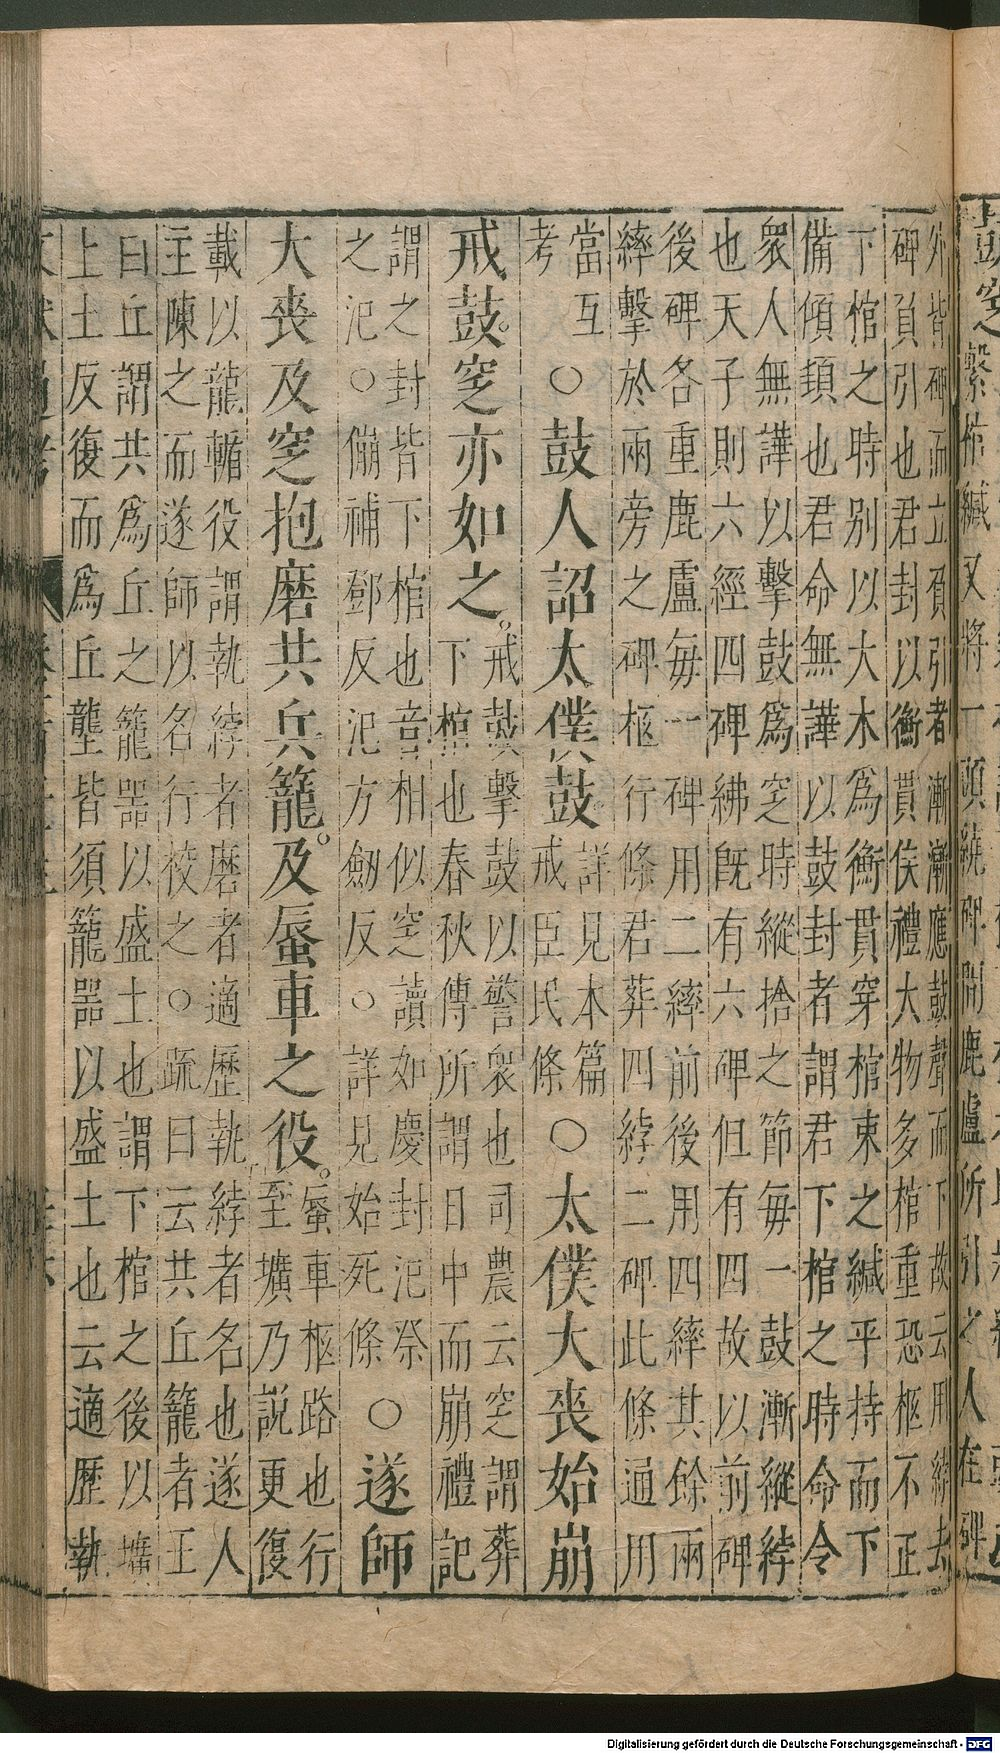 繫棺緘又將一頭繞碑間鹿盧所引之人在碑
外皆碑而立負引者漸漸應鼓聲而下故云用綍去
碑負引也君封以衡貫侯禮大物多棺重恐柩不正
下棺之時别以大木為衡貫穿棺束之緘平持而下
備傾頓也君命無譁以鼓封者謂君下棺之時命令
衆人無譁以擊鼓為窆時縱捨之節每一鼓漸縱綍
也天子則六經四碑紼既有六碑但有四故以前碑
後碑各重鹿盧每一碑用二繂前後用四繂其餘兩
繂擊於兩旁之碑柩行條君葬四綍二碑此條通用
當互
考
○鼓人詔太僕鼓
詳見本篇
戒臣民條
○太僕大喪始崩
戒鼓。窆亦如之。
戒鼓擊鼓以警衆也司農云窆謂葬
下棺也春秋傳所謂日中而崩禮記
謂之封皆下棺也音相似窆讀如慶封汜祭
之汜○傰補鄧反汜方劒反○詳見始死條
○遂師
大喪及窆抱磨共兵籠。及蜃車之役。
蜃車柩路也行
至壙乃説更復
載以龍輴役謂執綍者磨者適歷執綍者名也遂人
主陳之而遂師以名行校之○疏曰云共丘籠者王
曰丘謂共為丘之籠器以盛土也謂下棺之後以壙
上土反復而為丘壟皆須籠器以盛土也云適歷執
Digitalisierung gefördert durch die Deutsche Forschungsgemeinschaft - DFG